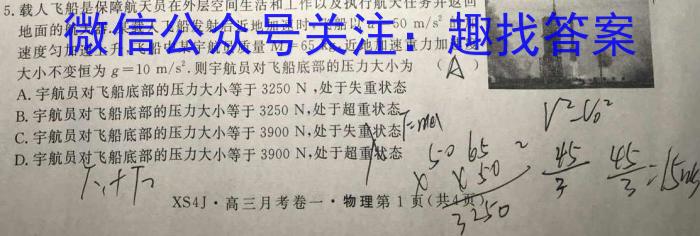 5. 载人飞船是保障航天员在外层空间生活和工作以及执行航天任务并返回
地面的 50 m/s² 的
微信公众号关注：趣找答案
速度匀加 质量 M=65 kg,近地 重力加
大小不变恒为 g=10 m/s².则宇航员对飞船底部的压力大小为 ( A
A. 宇航员对飞船底部的压力大小等于 3250 N,处于失重状态
B. 宇航员对飞船底部的压力大小等于 3250 N,处于超重状态
C. 宇航员对飞船底部的压力大小等于 3900 N,处于失重状态
D. 宇航员对飞船底部的压力大小等于 3900 N,处于超重状态
V²-V₀²
50 65
× × 50
3250
45/3 45/3 =15m/s
XS4J·高三月考卷一·物理第 1 页(共4页)